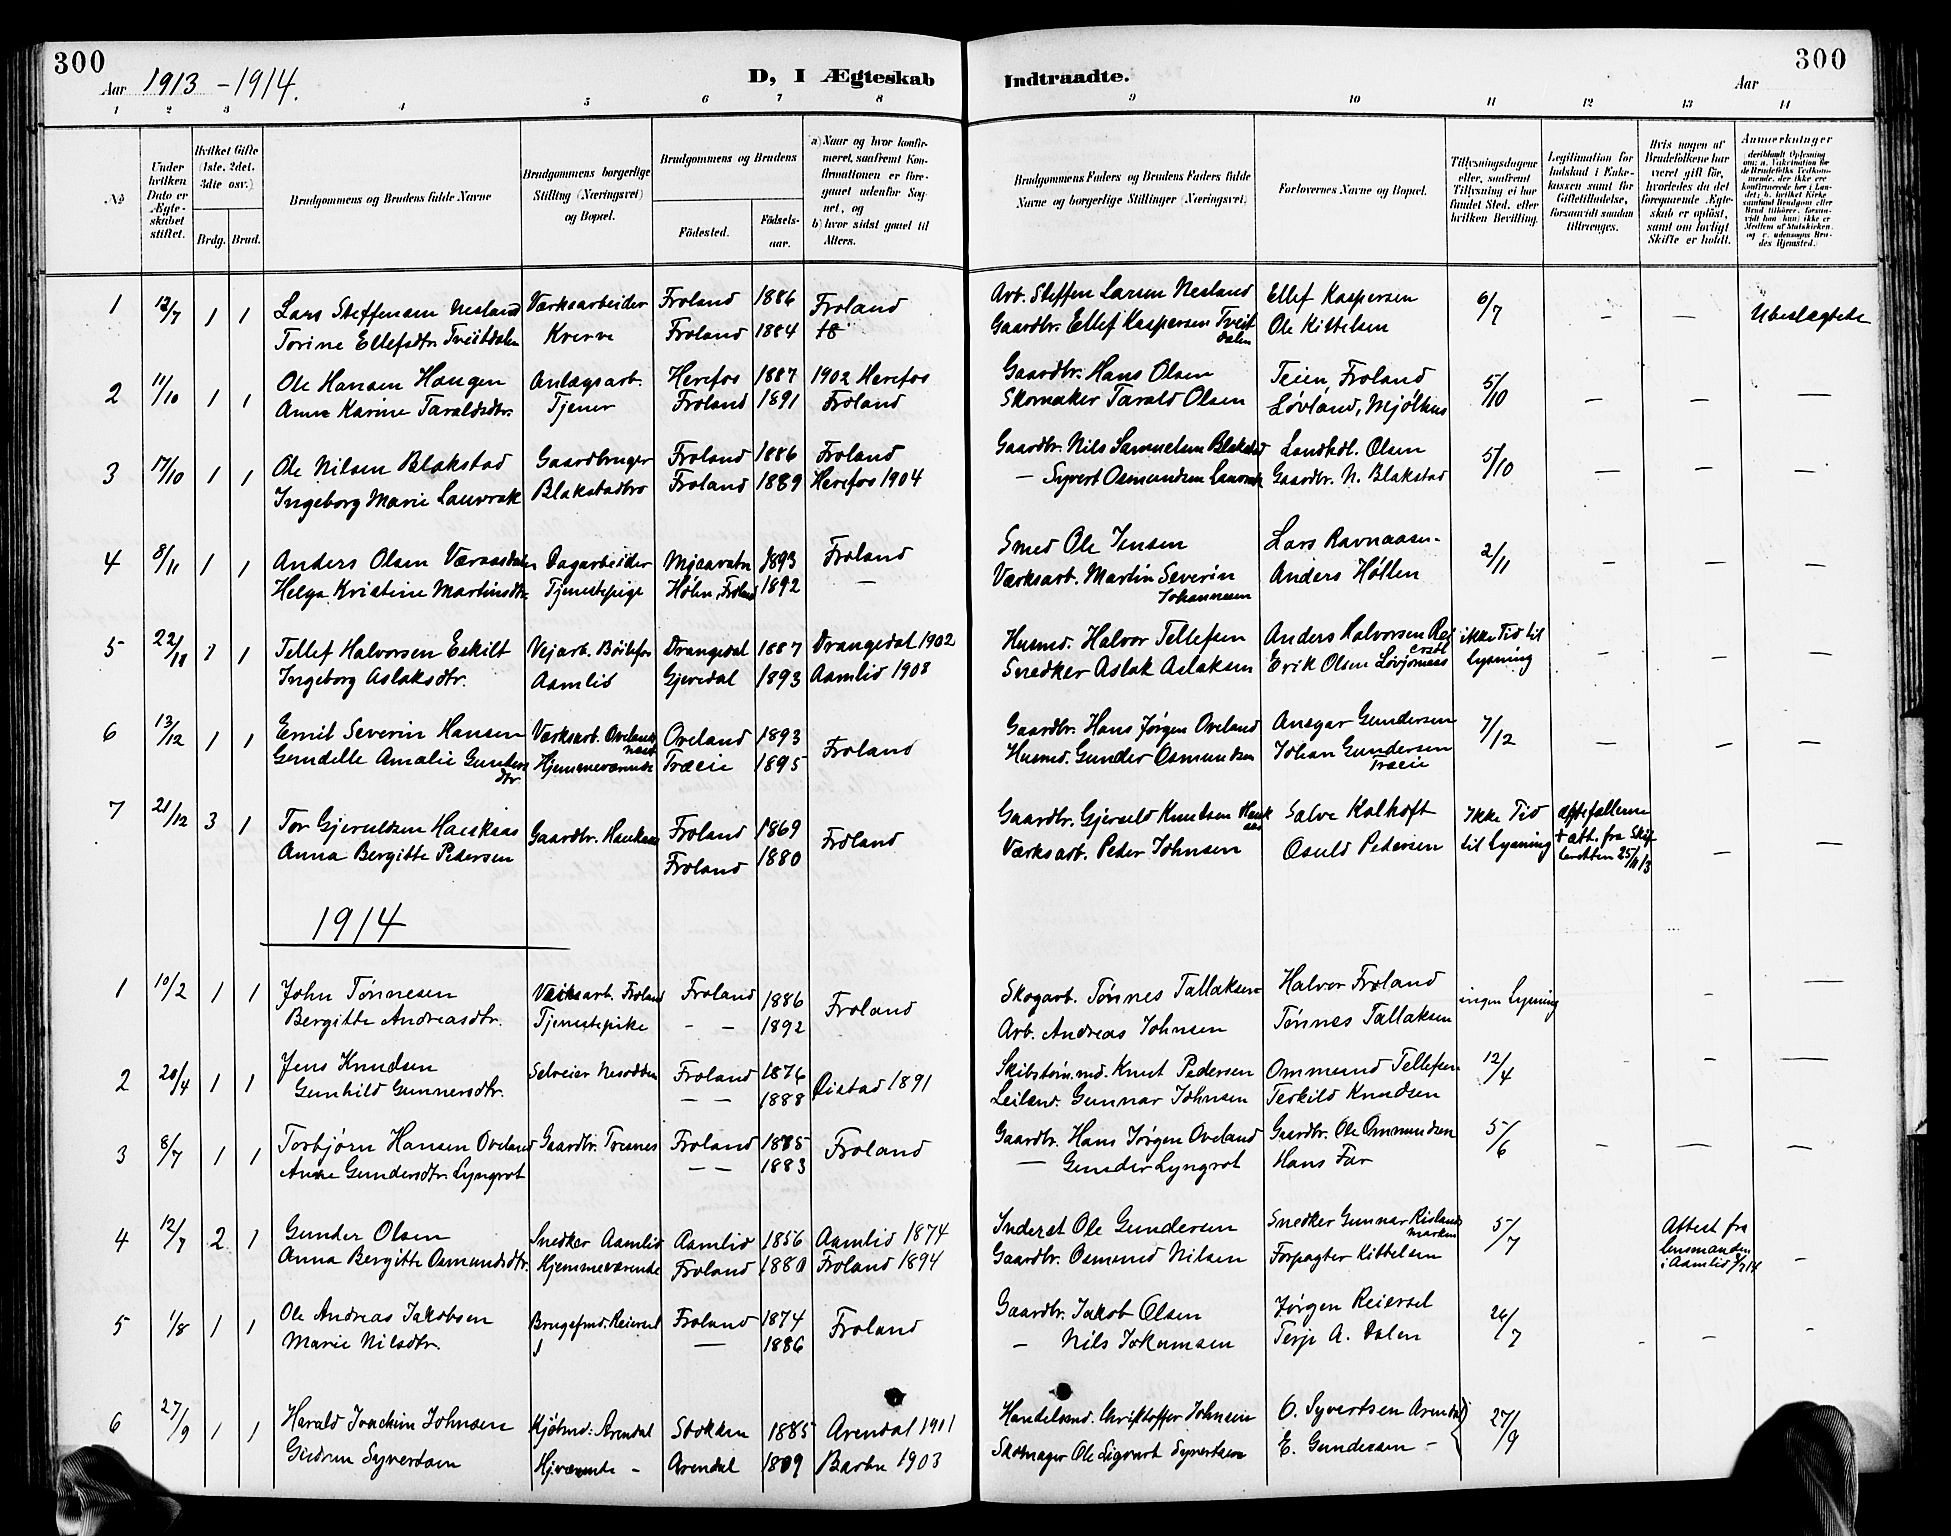 300
Aar 1913 - 1914.
D, I Ægteskab
Indtraadte.
Aar
300
1 2 3 4 5 6 7 8 9 10 11 12 13 14
No
Under hvilken Dato er Ægteskabet stiftet.
Hvilket Gifte (1ste, 2det, 3dte osv.)
Brdg. Brud.
Brudgommens og Brudens fulde Navne
Brudgommens borgerlige Stilling (Næringsvei) og Bopæl.
Brudgommens og Brudens
Fødested.
Fødselsaar.
a) Naar og hvor konfirmeret, saafremt Konfirmationen er foregaaet udenfor Sognet, og
b) hvor sidst gaaet til Alters.
Brudgommens Faders og Brudens Faders fulde Navne og borgerlige Stillinger (Næringsvei)
Forlovernes Navne og Bopæl.
Tillysningsdagene eller, saafremt Tillysning ei har fundet Sted, efter hvilken Bevilling.
Legitimation for Indskud i Enkekassen samt for Giftetilladelse, forsaavidt saadan tiltrænges.
Hvis nogen af Brudefolkene har været gift før, hvorledes da det foregaaende Ægteskab er opløst, samt om lovligt Skifte er holdt.
Anmerkninger
1 12/7 1 1 Lars Steffensen Nesland Værksarbeider Froland 1886 Froland Arb. Steffen Larsen Nesland Ellef Kaspersen 6/7 – – Ubeslægtede
Torine Ellefsdtr. Tveitdalen Kverve Froland 1884 Gaardbr. Ellef Kaspersen Tveitdalen Ole Kittelsen
2 11/10 1 1 Ole Hansen Haugen Anlægsarb. Herefos 1887 1902 Herefos Gaardbr. Hans Olsen Teien, Froland 5/10 – – –
Anne Karine Taraldsdtr. Tjener Froland 1891 Froland Skomaker Tarald Olsen Løvland, Mjølhus
3 17/10 1 1 Ole Nilsen Blakstad Gaardbruger Froland 1886 Froland Gaardbr. Nils Samuelsen Blakstad Landhdl. Olsen 5/10 – – –
Ingeborg Marie Lauvrak Blakstadbro Froland 1889 Herefos 1904 – Syvert Osmundsen Lauvrak Gaardbr. N. Blakstad
4 8/11 1 1 Anders Olsen Væraasdalen Dagarbeider Mjaavatn 1893 Froland Smed Ole Jensen Lars Ravnaasen 2/11 – – –
Helga Kristine Martinsdtr. Tjenestepige Høhn, Froland 1892 – Værksarb. Martin Severin Johannesen Anders Holten
5 22/11 1 1 Tellef Halvorsen Eskilt Vejarb. Bøilefos Drangedal 1887 Drangedal 1902 Husmd. Halvor Tellefsen Anders Halvorsen ikke Tid til – – –
Ingeborg Aslaksdtr. Aamlid Gjøvdal 1893 Aamlid 1908 Snedker Aslak Aslaksen Erik Olsen lysning
6 13/12 1 1 Emil Severin Hansen Værksarb. Ovelands Oveland 1893 Froland Gaardbr. Hans Jørgen Oveland Ansgar Gundersen 7/12 – – –
Gundelle Amalie Gundersdtr. Hjemmeværende Træeie 1895 Husmd. Gunder Osmundsen Johan Gundersen Træeie
7 21/12 3 1 Tor Gjeruldsen Haukaas Gaardbr. Haukaas Froland 1869 Froland Gaardbr. Gjeruld Knudsen Haukaas Salve Kalhoft Ikke Tid + att. fra Skifteretten 25/11 13 – –
Anna Bergitte Pedersen Froland 1880 Værksarb. Peder Johnsen Osuld Pedersen til lysning
1914
1 10/2 1 1 John Tønnesen Værksarb. Froland Froland 1886 Froland Skogarb. Tønnes Tallaksen Halvor Froland ingen lysning – –
Bergitte Andreasdtr. Tjenestepike – – 1892 Arb. Andreas Johnsen Tønnes Tallaksen
2 20/4 1 1 Jens Knudsen Selveier Nesodden Froland 1876 Øistad 1891 Skibstøm.md. Knut Pedersen Ommund Tellefsen 12/4 – –
Gunhild Gunnersdtr. – – 1888 Leilænd. Gunnar Johnsen Terkild Knudsen
3 8/7 1 1 Torbjørn Hansen Oveland Gaardbr. Tveanes Froland 1885 Froland Gaardbr. Hans Jørgen Oveland Gaardbr. Ole Ommundsen 5/6 – – –
Anne Gundersdtr. Lyngrot – – 1883 – Gunder Lyngrot Hans Far
4 12/7 2 1 Gunder Olsen Snedker Aamlid Aamlid 1856 Aamlid 1874 Inderst Ole Gundersen Snedker Gunnar Rislandmarken 5/7 Attest fra lensmanden i Aamlid –
Anna Bergitte Osmundsdtr. Hjemmeværende Froland 1880 Froland 1894 Gaardbr. Osmund Nilsen Forpagter Kittelsen
5 1/8 1 1 Ole Andreas Jakobsen Brugsfmd. Reiersøl Froland 1874 Froland Gaardbr. Jakob Olsen Jørgen Reiersøl 26/7 – – –
Marie Nilsdtr. – 1886 – Nils Jokumsen Terje A. Dalen
6 27/9 1 1 Harald Joachim Johnsen Kjøbmd. Arendal Stokken 1885 Arendal 1901 Handelsmd. Christoffer Johnsen O. Syvertsen Arendal 27/9
Gudrun Syvertsen Hj.værende – Arendal 1889 Barbu 1903 Skomager Ole Sigvart Syvertsen E. Gundersen –